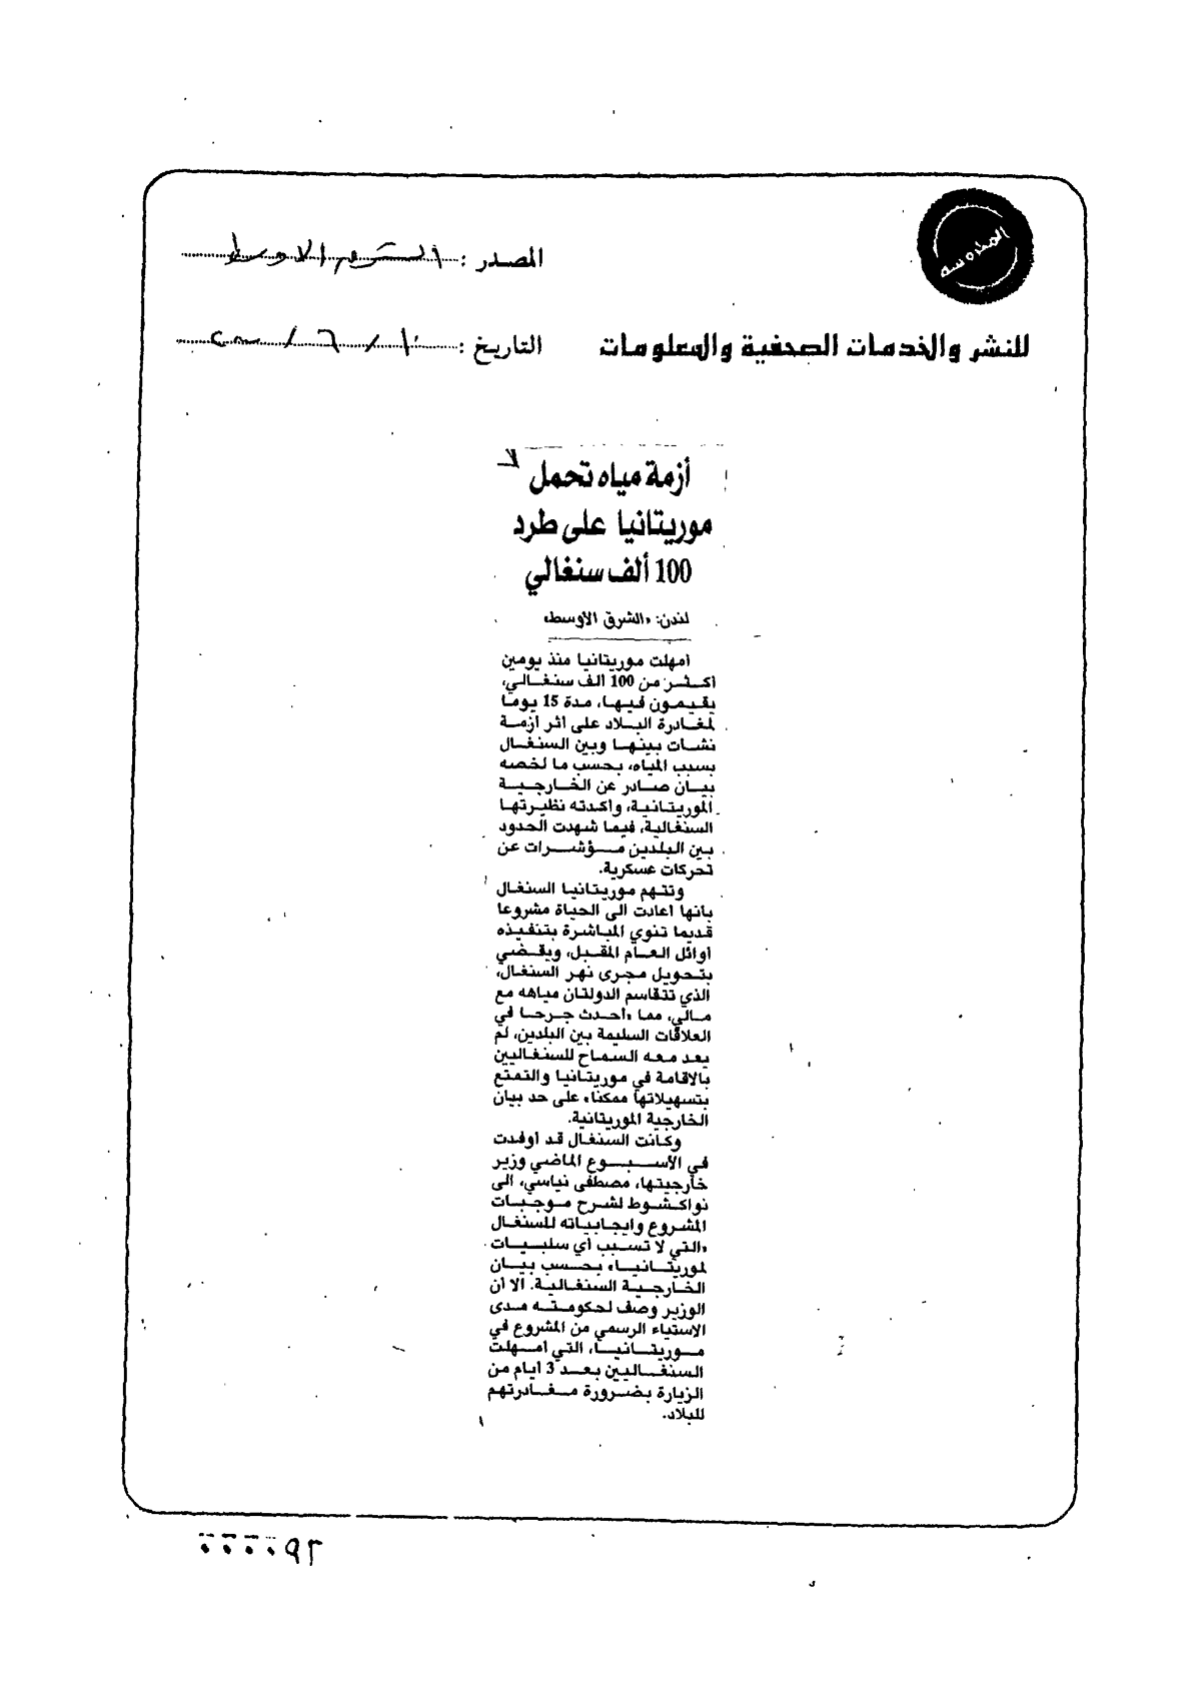 المصدر : الشرق الاوسط
للنشر والخدمات الصحفية والمعلومات
التاريخ : ١٠ / ٦ / ٢٠٠٠
أزمة مياه تحمل
موريتانيا على طرد
100 ألف سنغالي
لندن: «الشرق الاوسط»
امهلت موريتانيا منذ يومين
اكثر من 100 الف سنغالي،
يقيمون فيها، مدة 15 يوما
لمغادرة البلاد على اثر ازمة
نشات بينها وبين السنغال
بسبب المياه، بحسب ما لخصه
بيان صادر عن الخارجية
الموريتانية، واكدته نظيرتها
السنغالية، فيما شهدت الحدود
بين البلدين مؤشرات عن
تحركات عسكرية.
وتتهم موريتانيا السنغال
بانها اعادت الى الحياة مشروعا
قديما تنوي المباشرة بتنفيذه
اوائل العام المقبل، ويقضي
بتحويل مجرى نهر السنغال،
الذي تتقاسم الدولتان مياهه مع
مالي، مما «احدث جرحا في
العلاقات السليمة بين البلدين، لم
يعد معه السماح للسنغاليين
بالاقامة في موريتانيا والتمتع
بتسهيلاتها ممكنا» على حد بيان
الخارجية الموريتانية.
وكانت السنغال قد اوفدت
في الأسبوع الماضي وزير
خارجيتها، مصطفى نياسي، الى
نواكشوط لشرح موجبات
المشروع وايجابياته للسنغال
«التي لا تسبب أي سلبيات
لموريتانيا» بحسب بيان
الخارجية السنغالية. الا ان
الوزير وصف لحكومته مدى
الاستياء الرسمي من المشروع في
موريتانيا، التي امهلت
السنغاليين بعد 3 ايام من
الزيارة بضرورة مغادرتهم
للبلاد.